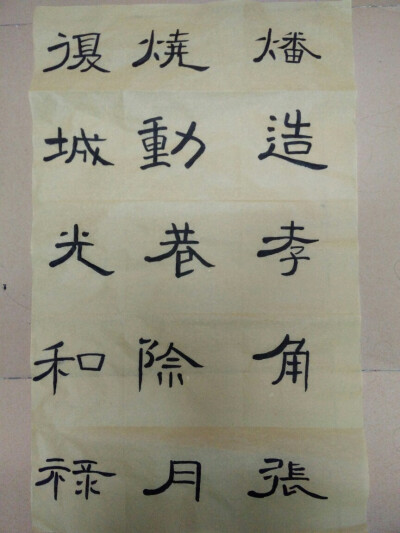 燔造孝角張
燒動巷除月
復城光和祿